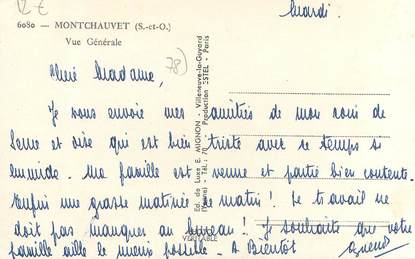 12 €
Mardi.
6080 — MONTCHAUVET (S.-et-O.)
Vue Générale
78)
Chère Madame,
Je vous envoie mes amitiés de mon coin de
Seine et oise qui est bien triste avec ce temps si
humide. Ma famille est venue et partie bien contente.
Enfin une grasse matinée ce matin! Le travail ne
doit pas manquer au bureau! Je souhaite que votre
famille aille le mieux possible. A Bientôt
Ed. de Luxe E. MIGNON - Villeneuve-la-Guyard
(Yonne) - Tél. : 70 Production ESTEL - Paris
VÉRITABLE